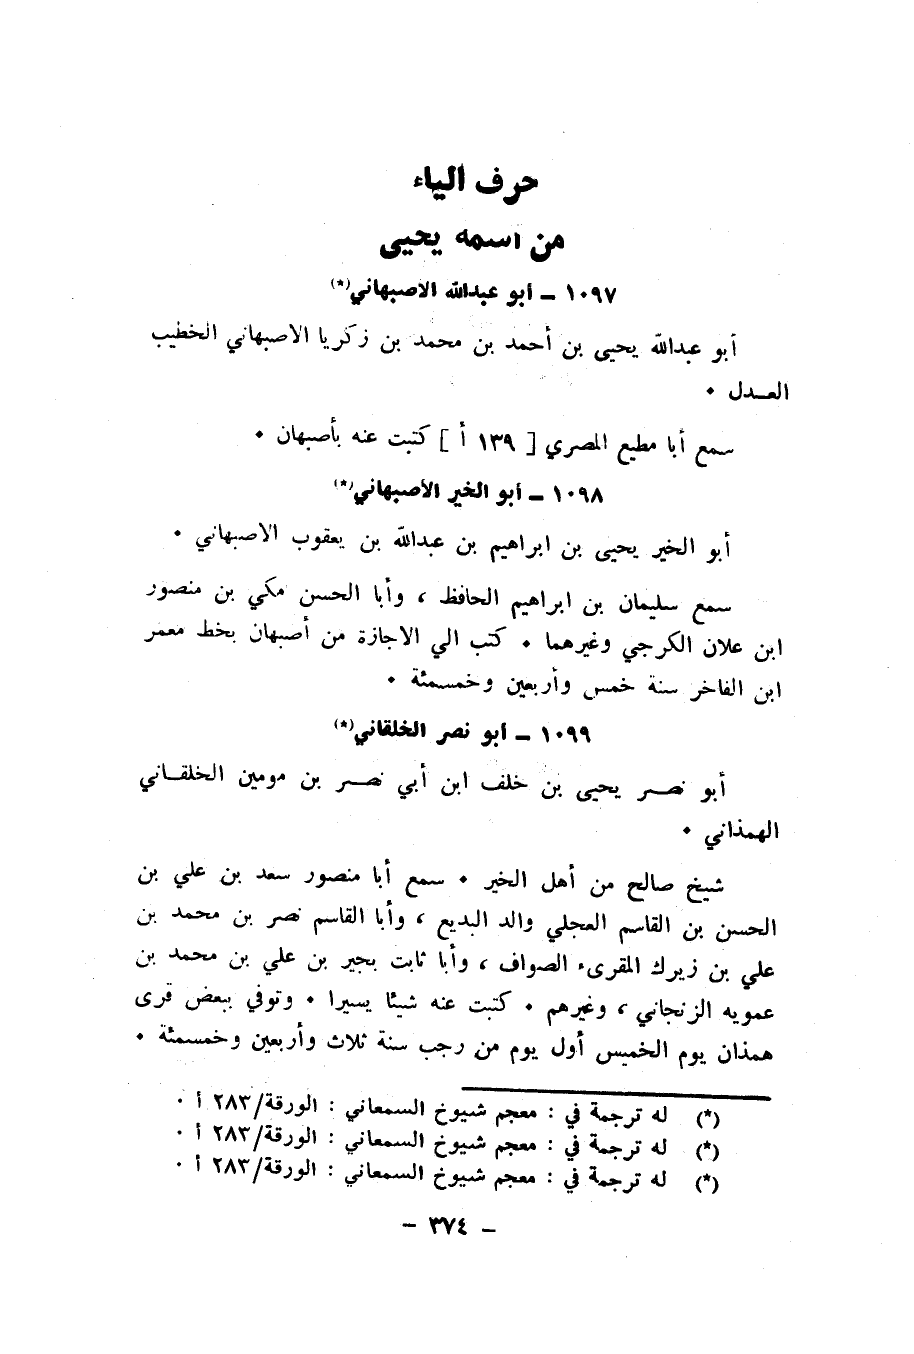 حرف الياء
من اسمه يحيى
١٠٩٧ ــ أبو عبدالله الاصبهاني(*)
أبو عبدالله يحيى بن أحمد بن محمد بن زكريا الاصبهاني الخطيب
العــدل ٠
سمع أبا مطيع المصري [ ١٣٩ أ ] كتبت عنه بأصبهان ٠
١٠٩٨ ــ أبو الخير الأصبهاني(*)
أبو الخير يحيى بن ابراهيم بن عبدالله بن يعقوب الاصبهاني ٠
سمع سليمان بن ابراهيم الحافظ ، وأبا الحسن مكي بن منصور
ابن علان الكرجي وغيرهما ٠ كتب الي الاجازة من أصبهان بخط معمر
ابن الفاخر سنة خمس وأربعين وخمسمئة ٠
١٠٩٩ ــ أبو نصر الخلقاني(*)
أبو نصــر يحيى بن خلف ابن أبي نصــر بن مومين الخلقــاني
الهمذاني ٠
شيخ صالح من أهل الخير ٠ سمع أبا منصور سعد بن علي بن
الحسن بن القاسم العجلي والد البديع ، وأبا القاسم نصر بن محمد بن
علي بن زيرك المقرىء الصواف ، وأبا ثابت بجير بن علي بن محمد بن
عمويه الزنجاني ، وغيرهم ٠ كتبت عنه شيئا يسيرا ٠ وتوفي ببعض قرى
همذان يوم الخميس أول يوم من رجب سنة ثلاث وأربعين وخمسمئة ٠
(*) له ترجمة في : معجم شيوخ السمعاني : الورقة/٢٨٣ أ ٠
(*) له ترجمة في : معجم شيوخ السمعاني : الورقة/٢٨٣ أ ٠
(*) له ترجمة في : معجم شيوخ السمعاني : الورقة/٢٨٣ أ ٠
– ٣٧٤ –